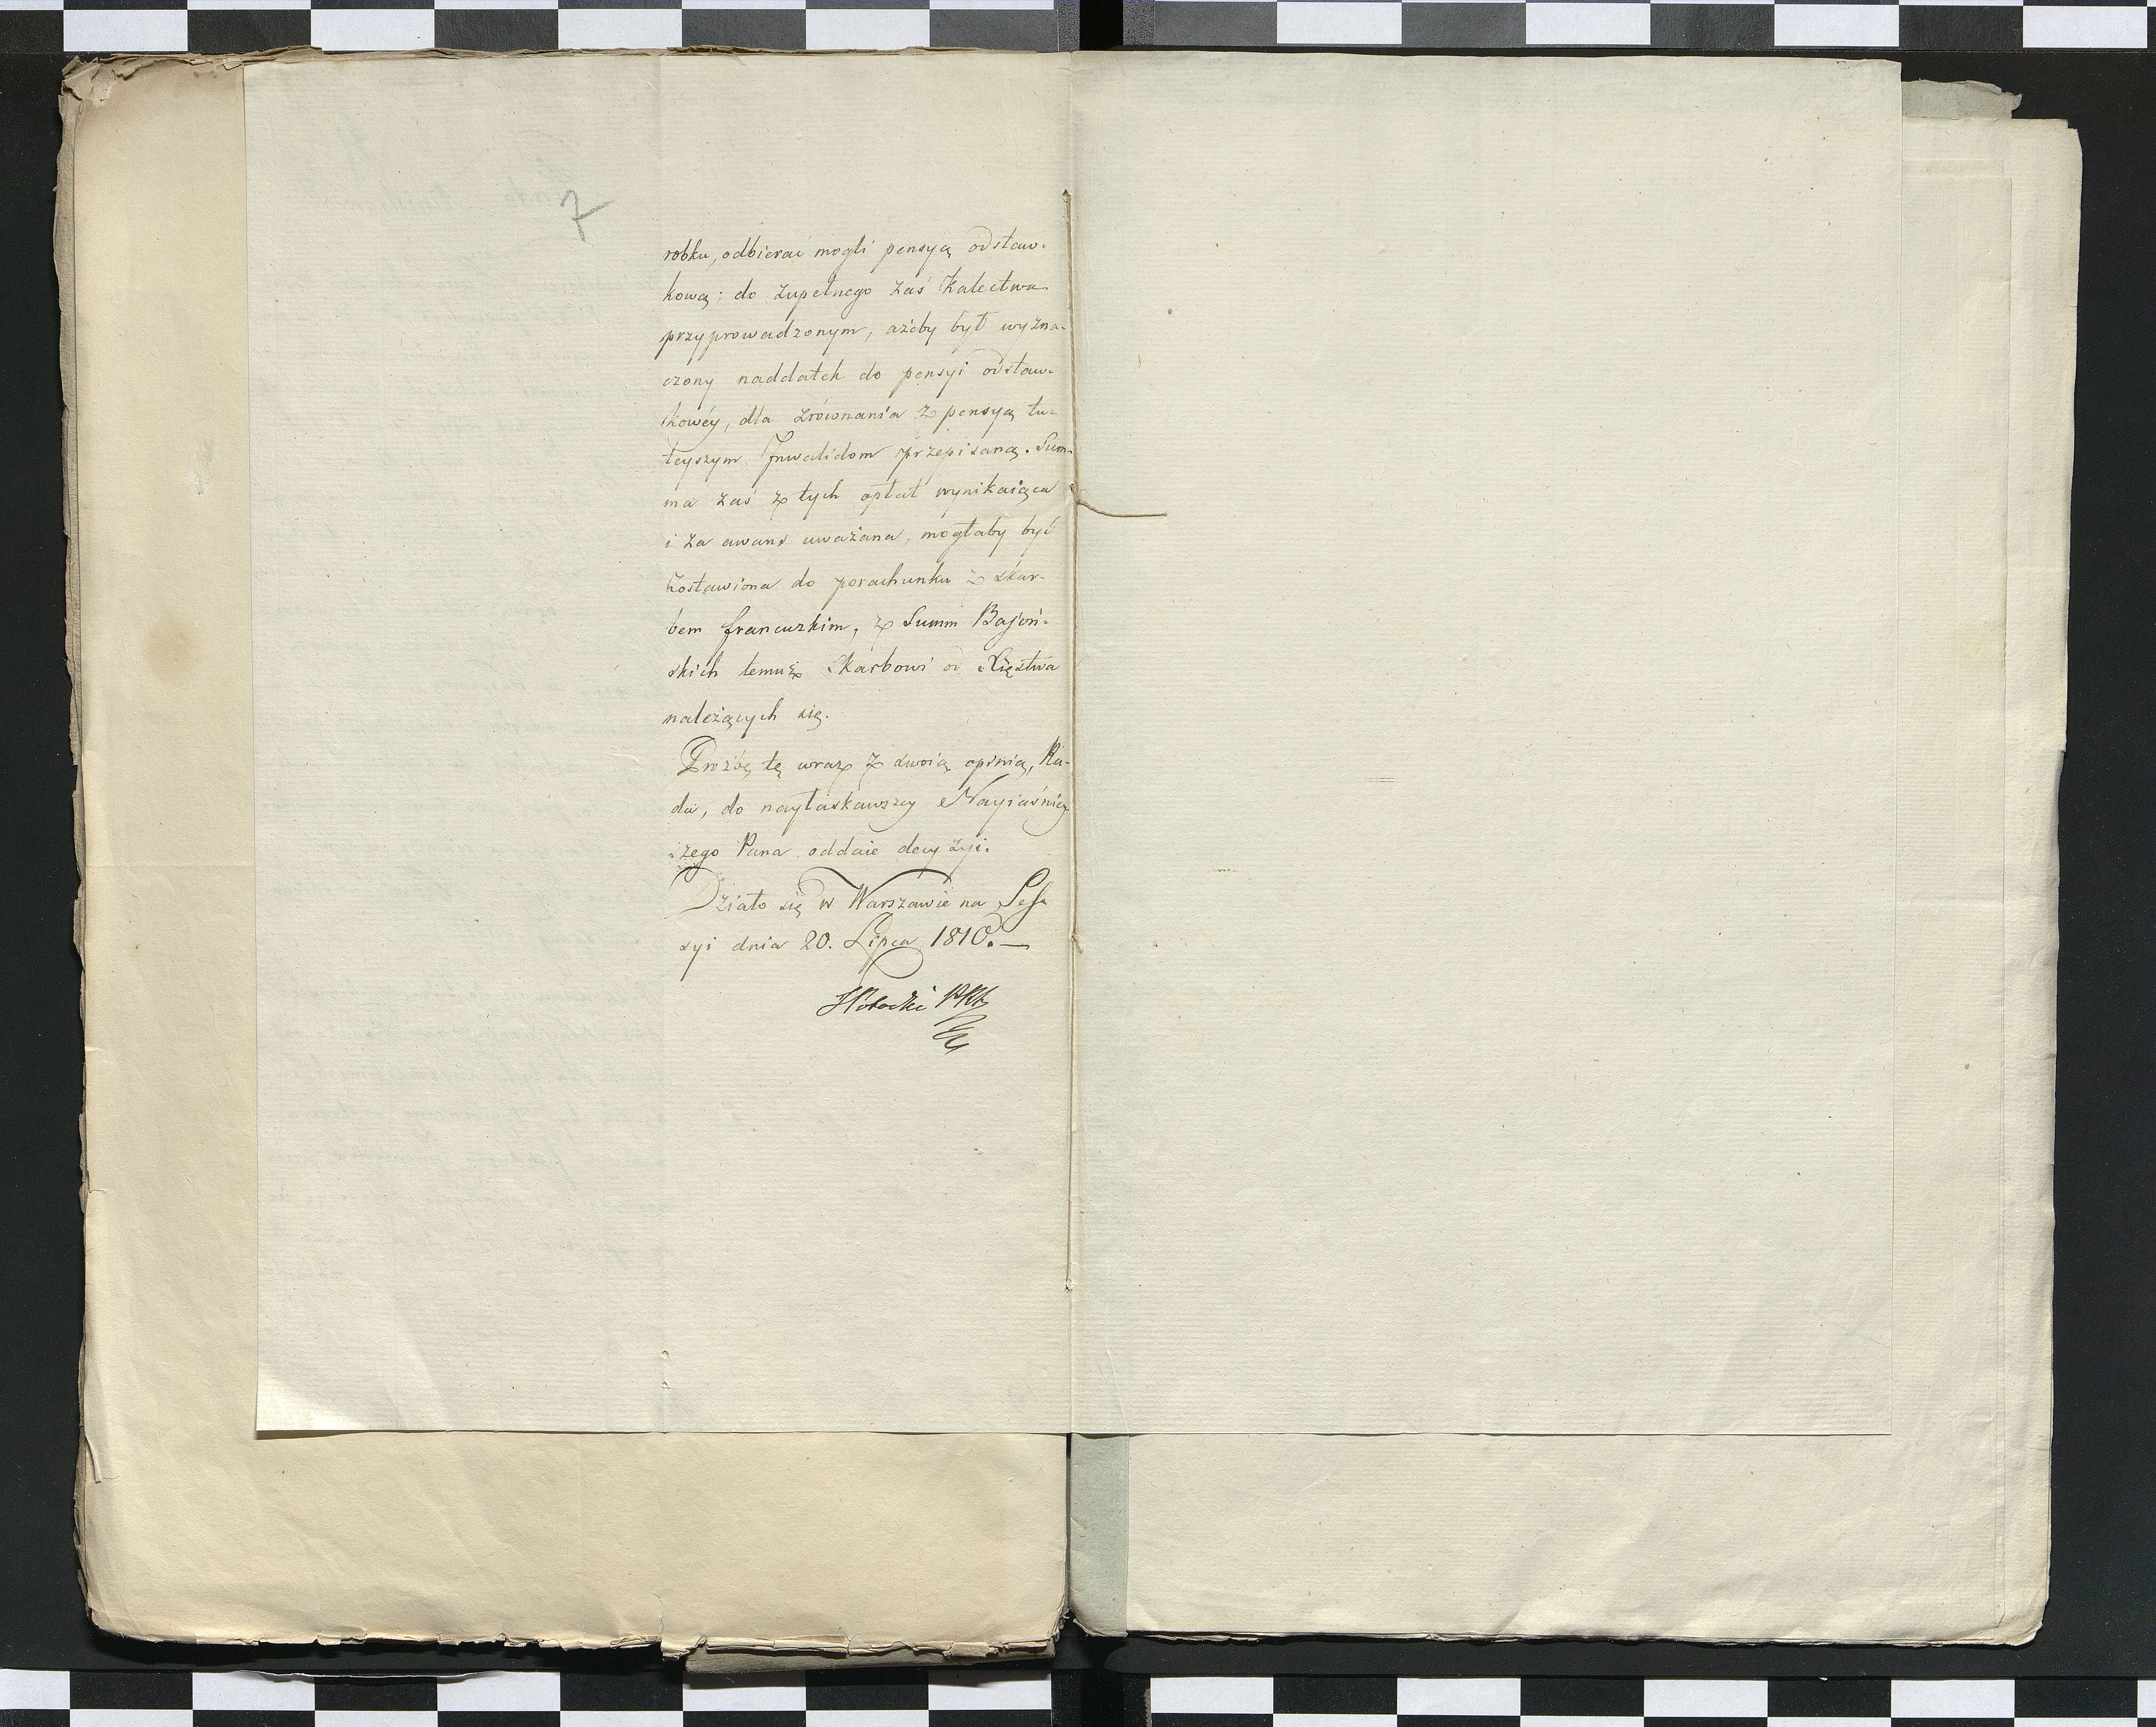 7
robku, odbierać mogli pensyą odstaw-
kową; do zupełnego zaś kalectwa
przyprowadzonym, ażeby był wyzna-
czony naddatek do pensyi odstaw-
kowéy, dla zrównania z pensyą tu-
teyszym Inwalidom przepisaną. Sum-
ma zaś z tych opłat wynikaiąca
i za awans uważana, mogłaby być
zostawiona do porachunku z skar-
bem francuzkim, z Summ Bajoń-
skich temuż skarbowi od Xięstwa
należących się.
Prożbę tę wraz z swoią opinią, Ra-
da, do nayłaskawszey Nayiaśniey-
szego Pana oddaie decyzyi.
Działo się w Warszawie na Ses-
syi dnia 20. Lipca 1810. —